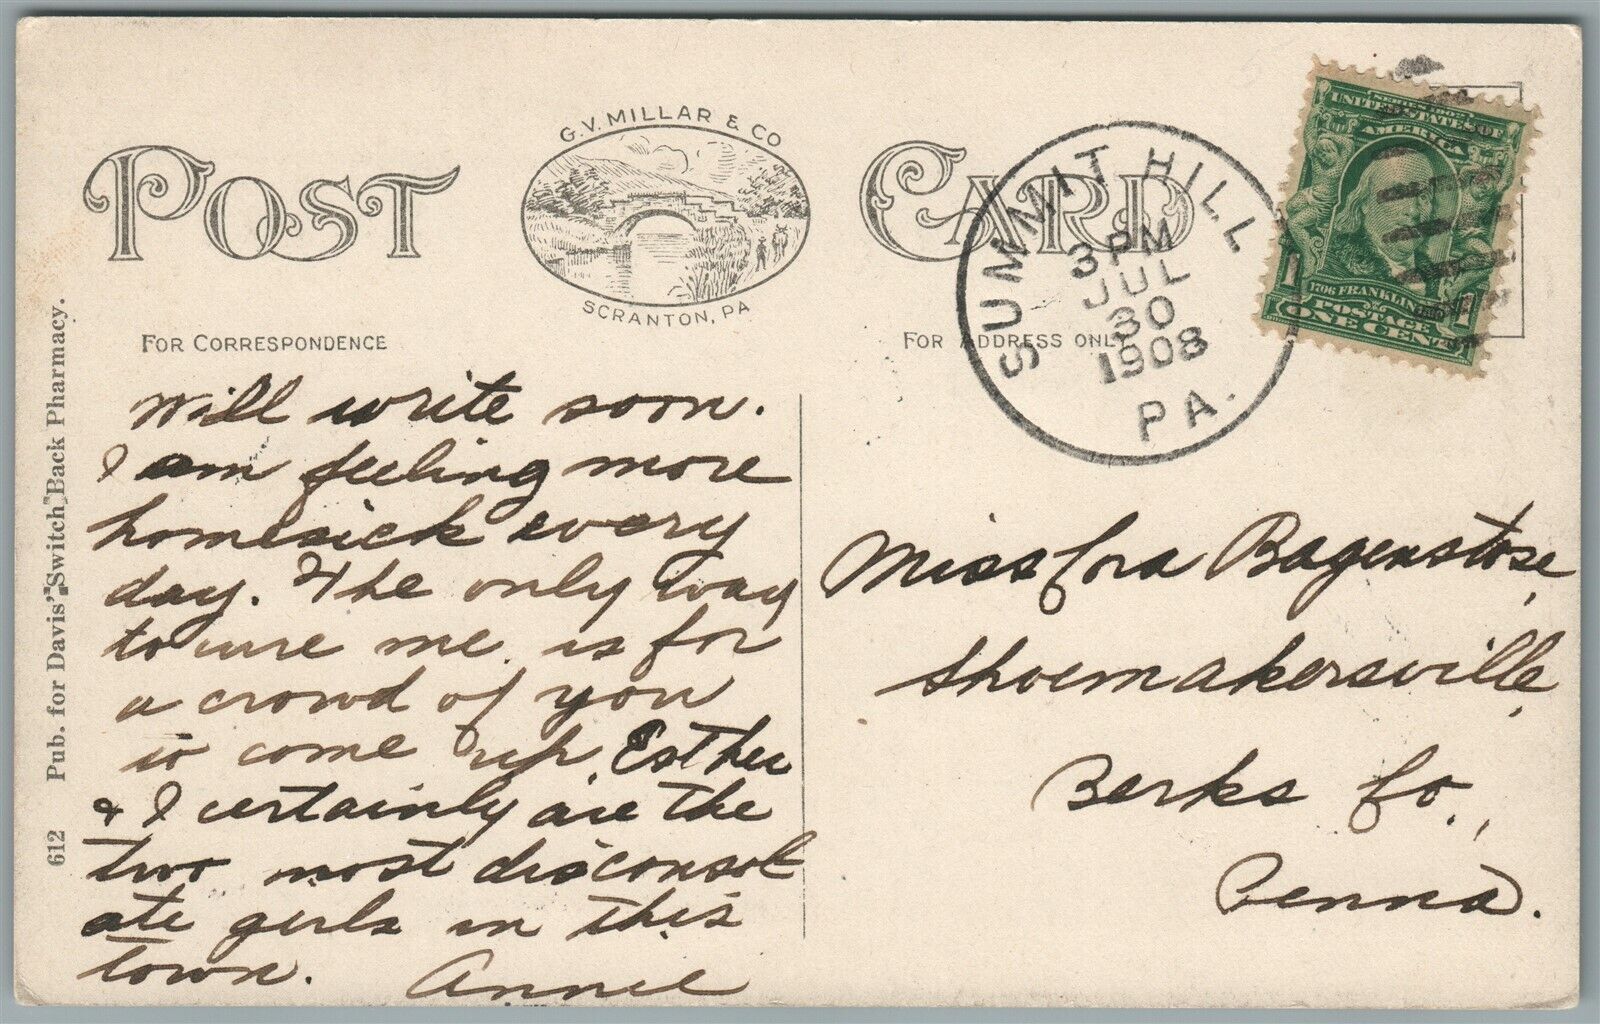 POST CARD
G.V. MILLAR & CO
SCRANTON, PA
FOR CORRESPONDENCE
FOR ADDRESS ONLY
SUMMIT HILL
3 PM
JUL
30
1908
PA.
SERIES OF 1902
UNITED STATES OF
AMERICA
1706 FRANKLIN 1790
POSTAGE
1 ONE CENT 1
612 Pub. for Davis' "Switch Back" Pharmacy.
Will write soon.
I am feeling more
homesick every
day. The only way
to cure me is for
a crowd of you
to come up. Esther
& I certainly are the
two most disconsol
ate girls in this
town. Annie
Miss Cora Bagenstose,
Shoemakersville,
Berks Co.,
Penna.